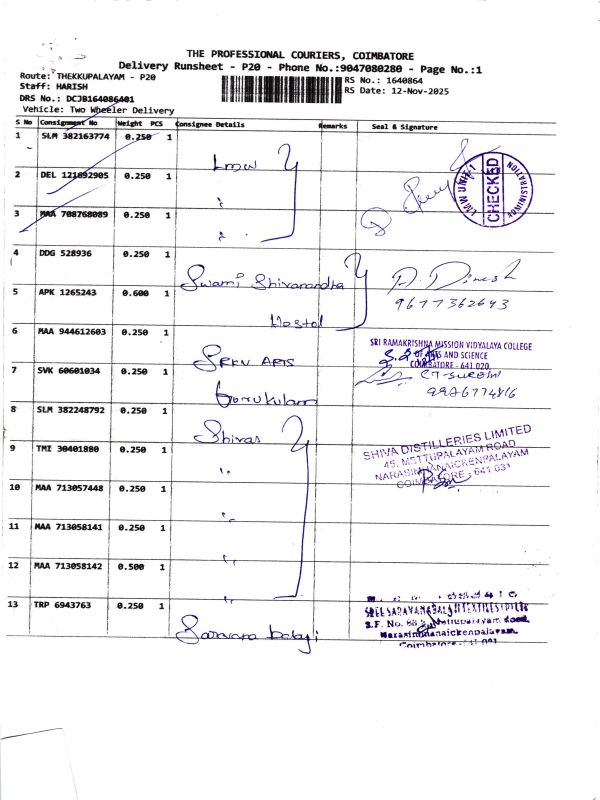 THE PROFESSIONAL COURIERS, COIMBATORE
Delivery Runsheet - P20 - Phone No.:9047080280 - Page No.:1
Route: THEKKUPALAYAM - P20
RS No.: 1640864
Staff: HARISH
RS Date: 12-Nov-2025
DRS No.: DCJB164086401
Vehicle: Two Wheeler Delivery
S No Consignment No Weight PCS Consignee Details Remarks Seal & Signature
1 SLM 382163774 0.250 1
LMW
2 DEL 121692905 0.250 1
LMW UNIT-1 CHECKED ADMINISTRATION
3 MAA 708768089 0.250 1
4 DDG 528936 0.250 1
Swami Shivanandha
D. Dinesh
5 APK 1265243 0.600 1
9677362643
Hostel
6 MAA 944612603 0.250 1
SRI RAMAKRISHNA MISSION VIDYALAYA COLLEGE
SRKV ARTS
OF ARTS AND SCIENCE
COIMBATORE - 641 020.
7 SVK 60601034 0.250 1
Gurukulam
8 SLM 382248792 0.250 1
Shivas
SHIVA DISTILLERIES LIMITED
45, METTUPALAYAM ROAD
NARASIMHANAICKENPALAYAM
COIMBATORE - 641 031
9 TMI 30401880 0.250 1
10 MAA 713057448 0.250 1
11 MAA 713058141 0.250 1
12 MAA 713058142 0.500 1
13 TRP 6943763 0.250 1
Saravana balaji
Mettupalayam Road,
Narasimhanaickenpalayam,